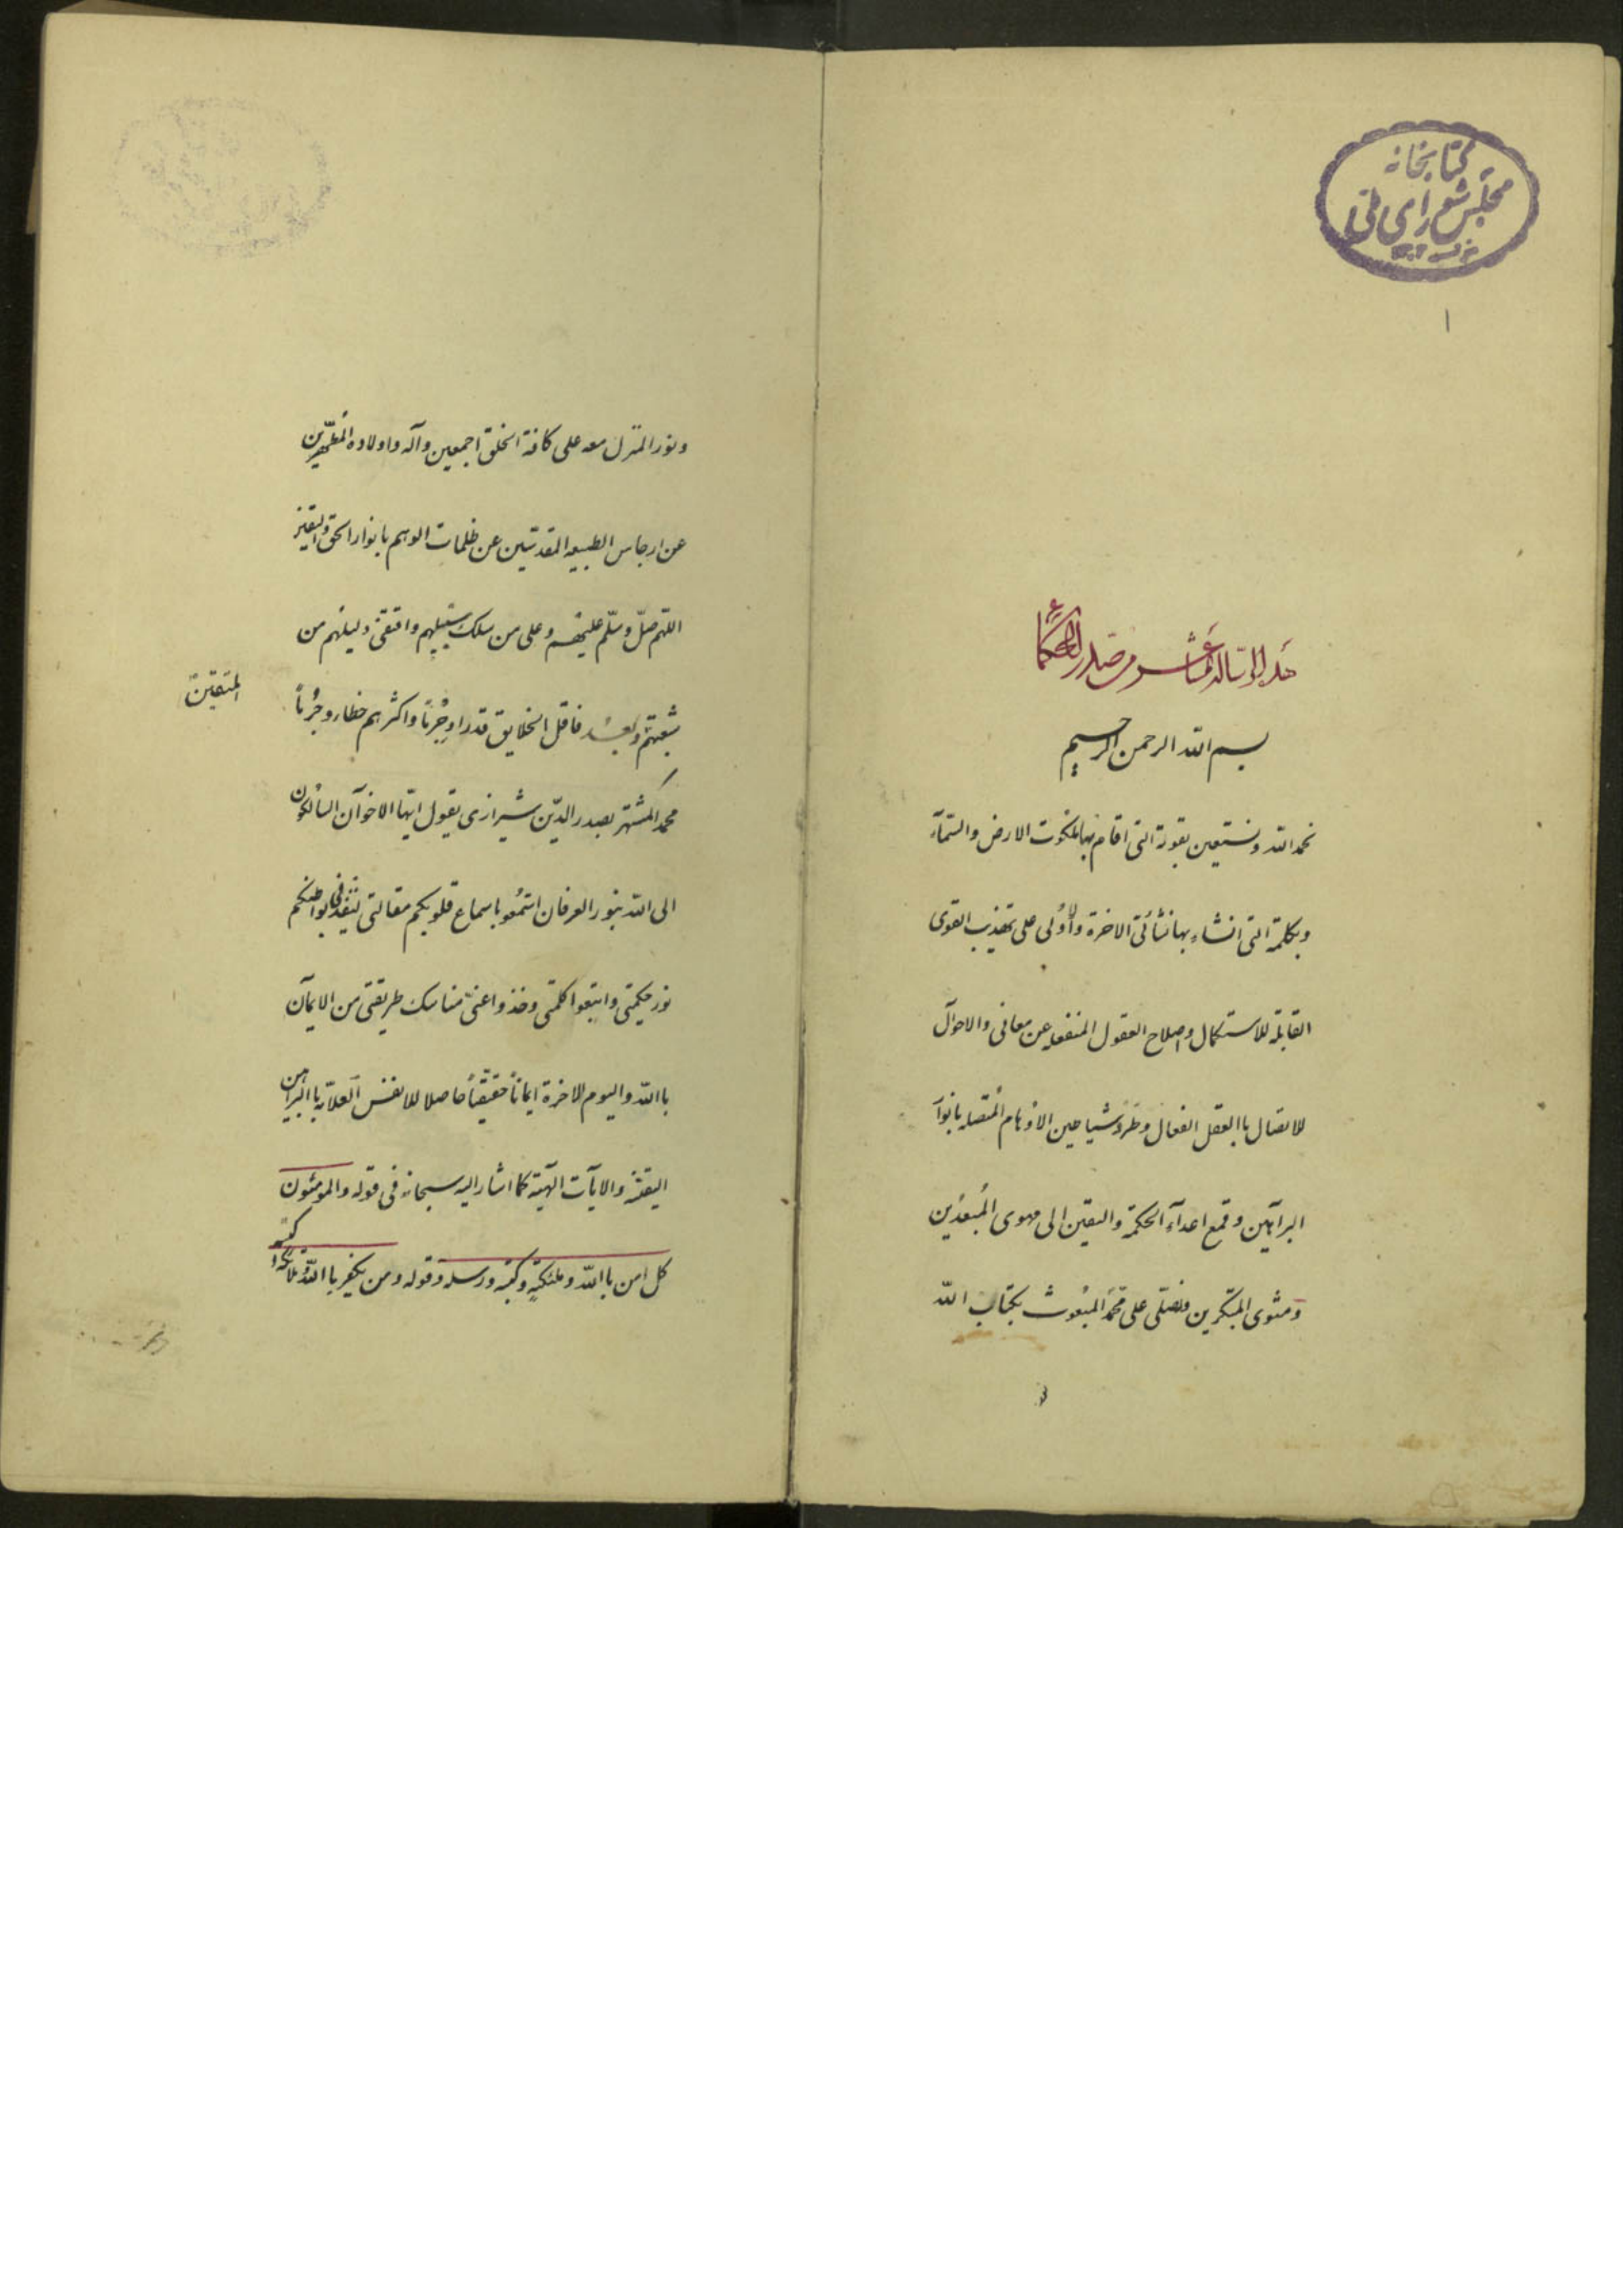 کتابخانه
مجلس شورای ملی
١
هذا الرسالة المشاعر من صدر الحکماء
بسم الله الرحمن الرحیم
نحمد الله ونستعین بقوته التی اقام بها ملکوت الارض والسمآء
وبکلمته التی انشاء بها نشأتی الاخرة والأولی علی تهذیب القوی
القابلة للاستکمال واصلاح العقول المنفعله عن معانی والاحوال
للاتصال باالعقل الفعال وطرد شیاطین الاوهام المتصله بانوآر
البرآهین وقمع اعدآء الحکمة والیقین الی مهوی المبعدین
ومثوی المتکبرین ونصلی علی محمد المبعوث بکتاب الله
ونور المنزل معه علی کافة الخلق اجمعین وآله واولاده المطهرین
عن ارجاس الطبیعه المقدسین عن ظلمات الوهم بانوار الحق والیقین
اللهم صلّ وسلّم علیهم وعلی من سلک سبیلهم واقتفی دلیلهم من
شیعتهم وبعد فاقل الخلایق قدرا وجُرماً واکثرهم خطاء وجُرماً
المتقین
محمد المشتهر بصدر الدّین شیرازی یقول ایها الاخوآن السالکون
الی الله بنور العرفان استمعوا باسماع قلوبکم مقالتی لینفذ فی بواطنکم
نور حکمتی واتبعوا کلمتی وخذوا عنی مناسک طریقتی من الایمآن
باالله والیوم الاخرة ایماناً حقیقیّاً حاصلا للانفس العلاّمه باالبراهین
الیقینیه والآیات الآلهیة کما اشار الیه سبحانه فی قوله والمومنون
کل امن باالله وملئکته وکتبه ورسله وقوله ومن یکفر باالله وملائکته
وکتبه